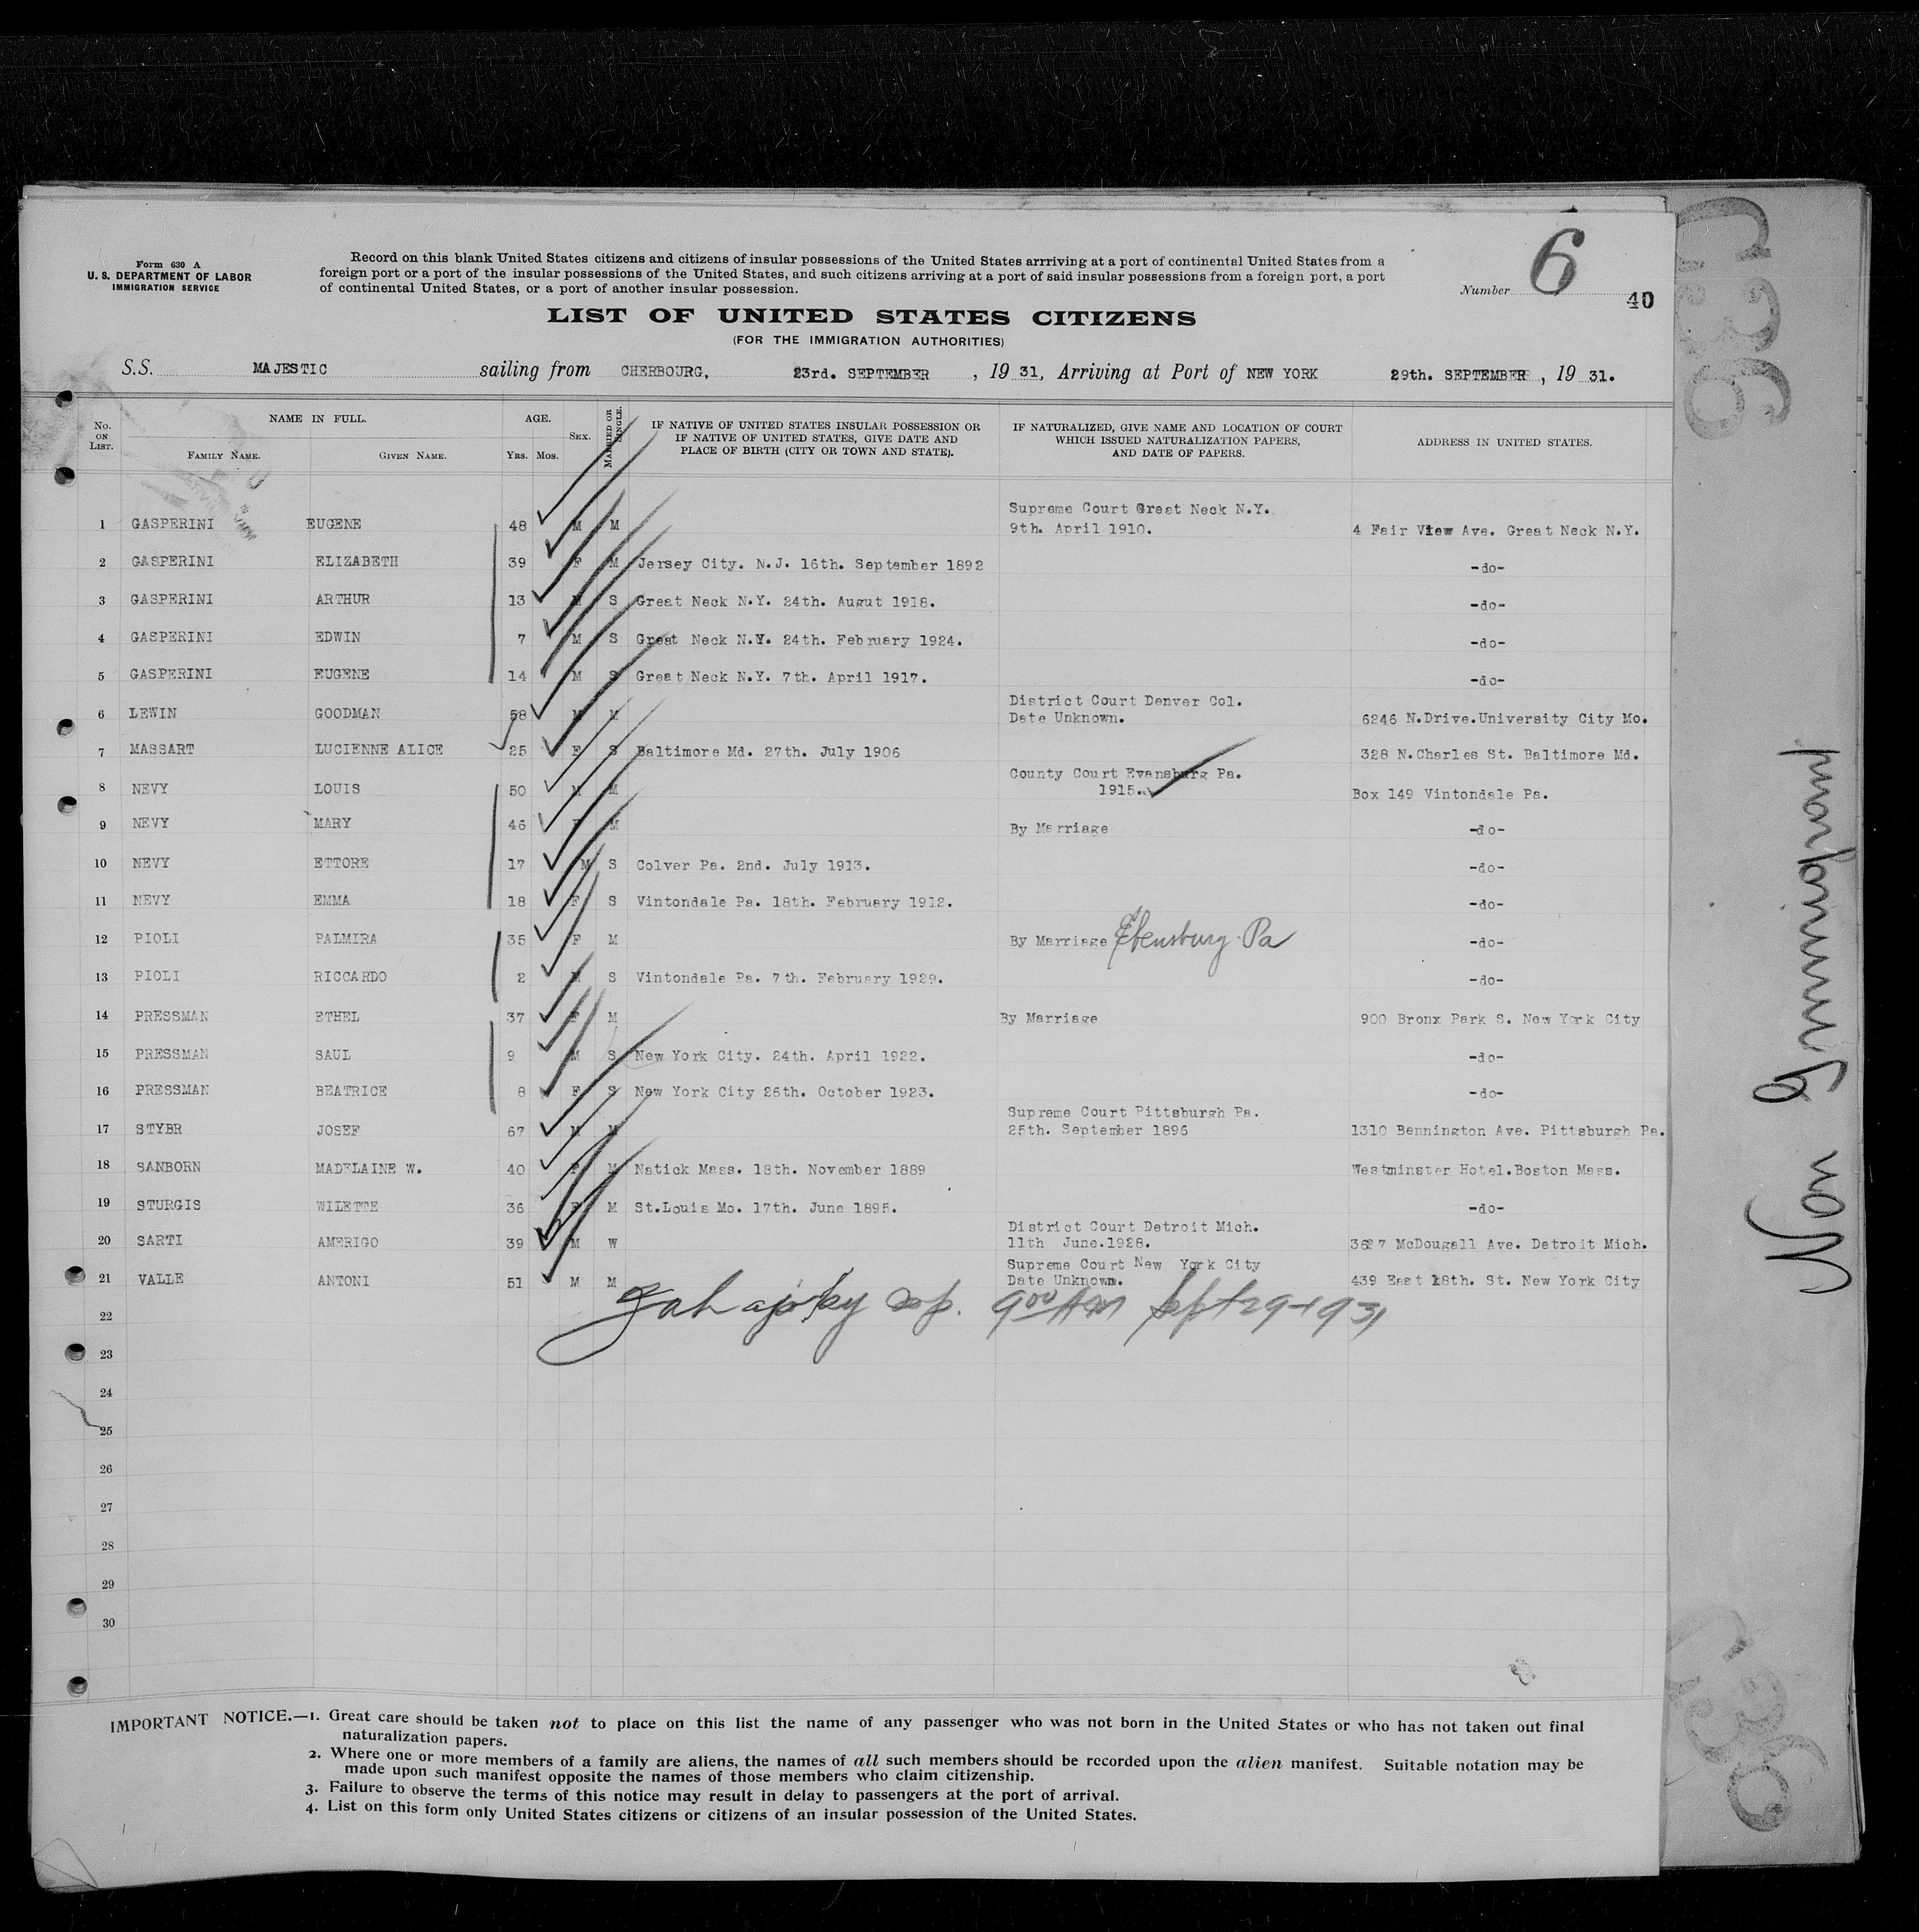 Form 630 A
U. S. DEPARTMENT OF LABOR
IMMIGRATION SERVICE
Record on this blank United States citizens and citizens of insular possessions of the United States arrriving at a port of continental United States from a
foreign port or a port of the insular possessions of the United States, and such citizens arriving at a port of said insular possessions from a foreign port, a port
of continental United States, or a port of another insular possession.
Number 6
40
LIST OF UNITED STATES CITIZENS
(FOR THE IMMIGRATION AUTHORITIES)
S.S. MAJESTIC sailing from CHERBOURG, 23rd. SEPTEMBER , 19 31, Arriving at Port of NEW YORK 29th. SEPTEMBER , 19 31.
No. ON LIST. NAME IN FULL. FAMILY NAME. GIVEN NAME. AGE. YRS. MOS. SEX. MARRIED OR SINGLE. IF NATIVE OF UNITED STATES INSULAR POSSESSION OR IF NATIVE OF UNITED STATES, GIVE DATE AND PLACE OF BIRTH (CITY OR TOWN AND STATE). IF NATURALIZED, GIVE NAME AND LOCATION OF COURT WHICH ISSUED NATURALIZATION PAPERS, AND DATE OF PAPERS. ADDRESS IN UNITED STATES.
Supreme Court Great Neck N.Y.
1 GASPERINI EUGENE 48 M M 9th. April 1910. 4 Fair View Ave. Great Neck N.Y.
2 GASPERINI ELIZABETH 39 F M Jersey City. N.J. 16th. September 1892 -do-
3 GASPERINI ARTHUR 13 M S Great Neck N.Y. 24th. Augut 1918. -do-
4 GASPERINI EDWIN 7 M S Great Neck N.Y. 24th. February 1924. -do-
5 GASPERINI EUGENE 14 M S Great Neck N.Y. 7th. April 1917. -do-
District Court Denver Col.
6 LEWIN GOODMAN 58 M M Date Unknown. 6246 N.Drive.University City Mo.
7 MASSART LUCIENNE ALICE 25 F S Baltimore Md. 27th. July 1906 328 N.Charles St. Baltimore Md.
County Court Evansburg Pa.
8 NEVY LOUIS 50 M M 1915. Box 149 Vintondale Pa.
9 NEVY MARY 46 F M By Marriage -do-
10 NEVY ETTORE 17 M S Colver Pa. 2nd. July 1913. -do-
11 NEVY EMMA 18 F S Vintondale Pa. 18th. February 1912. -do-
12 PIOLI PALMIRA 35 F M By Marriage Ebensburg Pa -do-
13 PIOLI RICCARDO 2 M S Vintondale Pa. 7th. February 1929. -do-
14 PRESSMAN ETHEL 37 F M By Marriage 900 Bronx Park S. New York City
15 PRESSMAN SAUL 9 M S New York City. 24th. April 1922. -do-
16 PRESSMAN BEATRICE 8 F S New York City 26th. October 1923. -do-
Supreme Court Pittsburgh Pa.
17 STYBR JOSEF 67 M M 25th. September 1896 1310 Bennington Ave. Pittsburgh Pa.
18 SANBORN MADELAINE W. 40 F M Natick Mass. 18th. November 1889 Westminster Hotel.Boston Mass.
19 STURGIS WILETTE 36 F M St.Louis Mo. 17th. June 1895. -do-
District Court Detroit Mich.
20 SARTI AMERIGO 39 M W 11th June.1928. 3627 McDougall Ave. Detroit Mich.
Supreme Court New York City
21 VALLE ANTONI 51 M M Date Unknown. 439 East 18th. St. New York City
22 Sept 29-1931
23
24
25
26
27
28
29
30
IMPORTANT NOTICE.—1. Great care should be taken not to place on this list the name of any passenger who was not born in the United States or who has not taken out final
naturalization papers.
2. Where one or more members of a family are aliens, the names of all such members should be recorded upon the alien manifest. Suitable notation may be
made upon such manifest opposite the names of those members who claim citizenship.
3. Failure to observe the terms of this notice may result in delay to passengers at the port of arrival.
4. List on this form only United States citizens or citizens of an insular possession of the United States.
Non Immigrant